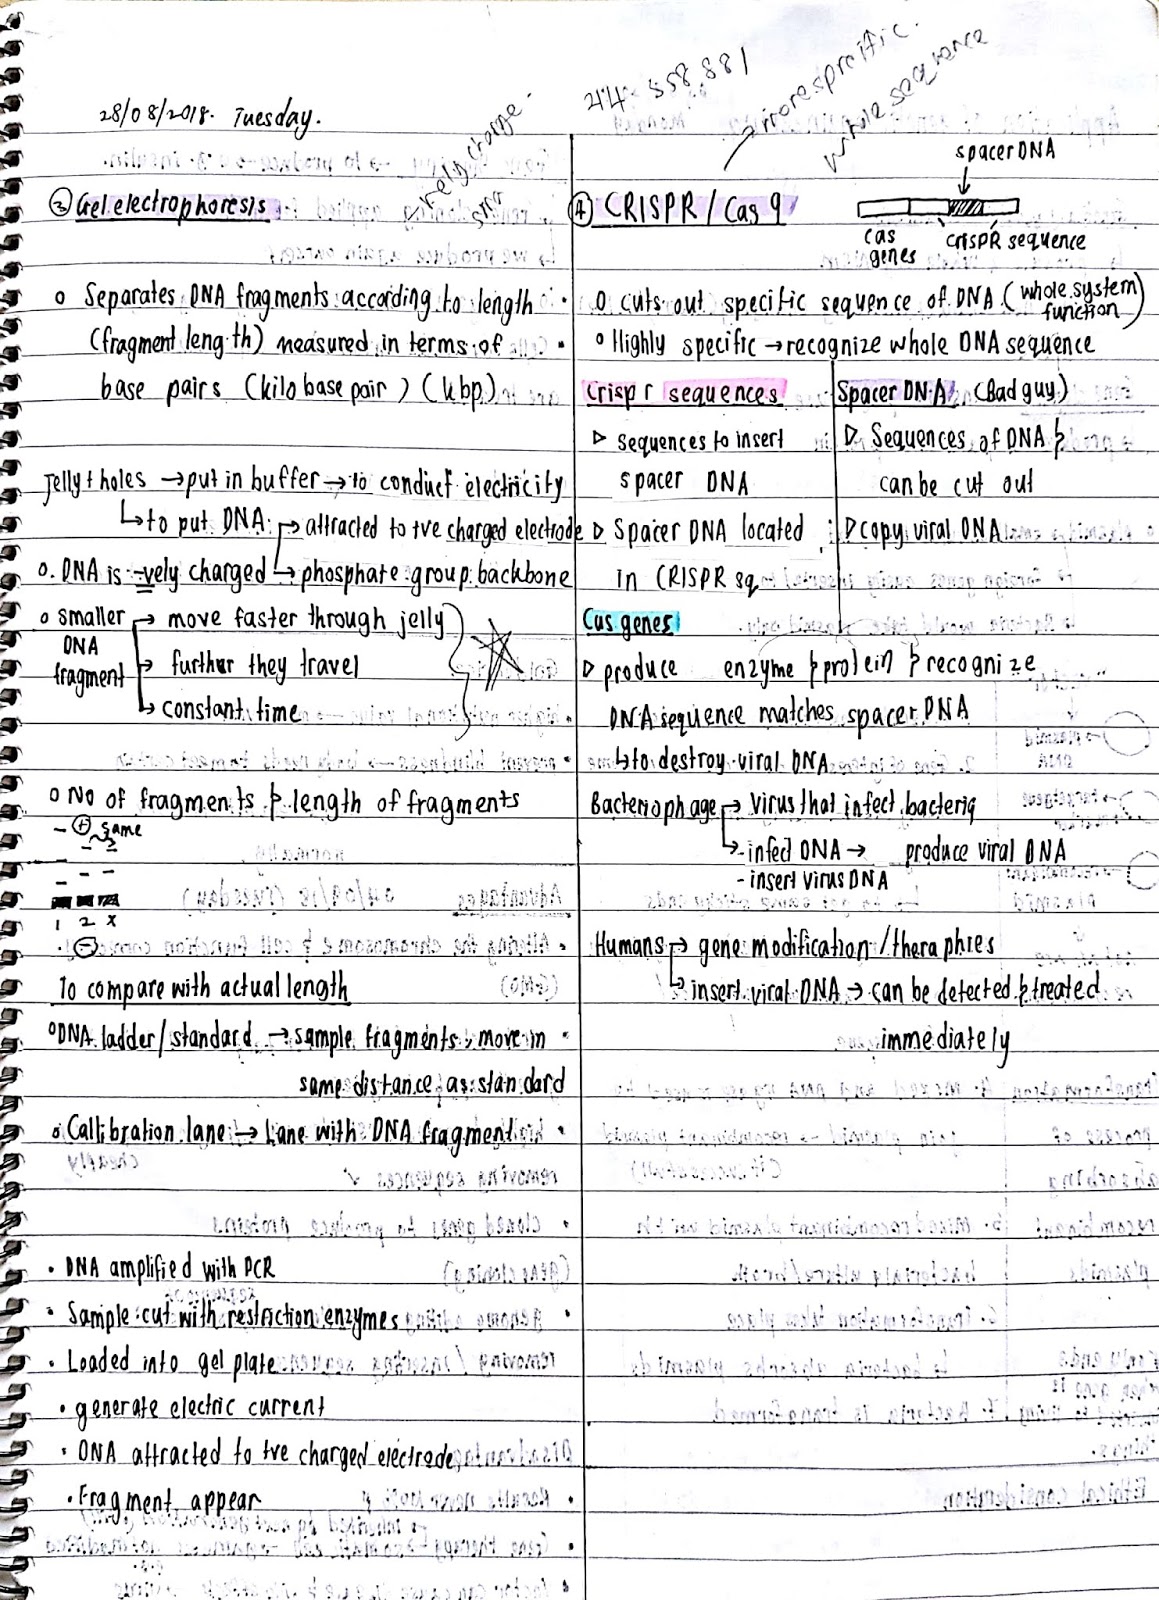 28/08/2018. Tuesday.
③ Gel electrophoresis
→ vely charge.
o Separates DNA fragments according to length
(fragment length) measured in terms of
base pairs (kilobase pair) (kbp)
jelly + holes → put in buffer → to conduct electricity
↳ to put DNA → attracted to +ve charged electrode
o. DNA is -vely charged ↳ phosphate group backbone
o smaller → move faster through jelly
DNA → further they travel
fragment ↳ constant time
o No of fragments & length of fragments
- ⊕ same
1 2 X
⊖
To compare with actual length
o DNA ladder/standard → sample fragments, move in
same distance as standard
o Callibration lane → Lane with DNA fragment
• DNA amplified with PCR
• Sample cut with restriction enzymes
• Loaded into gel plate
• generate electric current
• DNA attracted to +ve charged electrode
• Fragment appear
44 558.881
→ more specific.
whole sequence
④ CRISPR / Cas 9
spacer DNA
cas
genes
crisPR sequence
o cuts out specific sequence of DNA (whole system
function)
o Highly specific → recognize whole DNA sequence
Crispr sequences
▷ sequences to insert
spacer DNA
▷ Spacer DNA located
in CRISPR sq
Spacer DNA (Bad guy)
▷ Sequences of DNA &
can be cut out
▷ copy viral DNA
Cas genes
▷ produce enzyme & protein & recognize
DNA sequence matches spacer DNA
↳ to destroy viral DNA
Bacteriophage → virus that infect bacteria
↳ - infect DNA → produce viral DNA
- insert virus DNA
Humans → gene modification / theraphies
↳ insert viral DNA → can be detected & treated
immediately